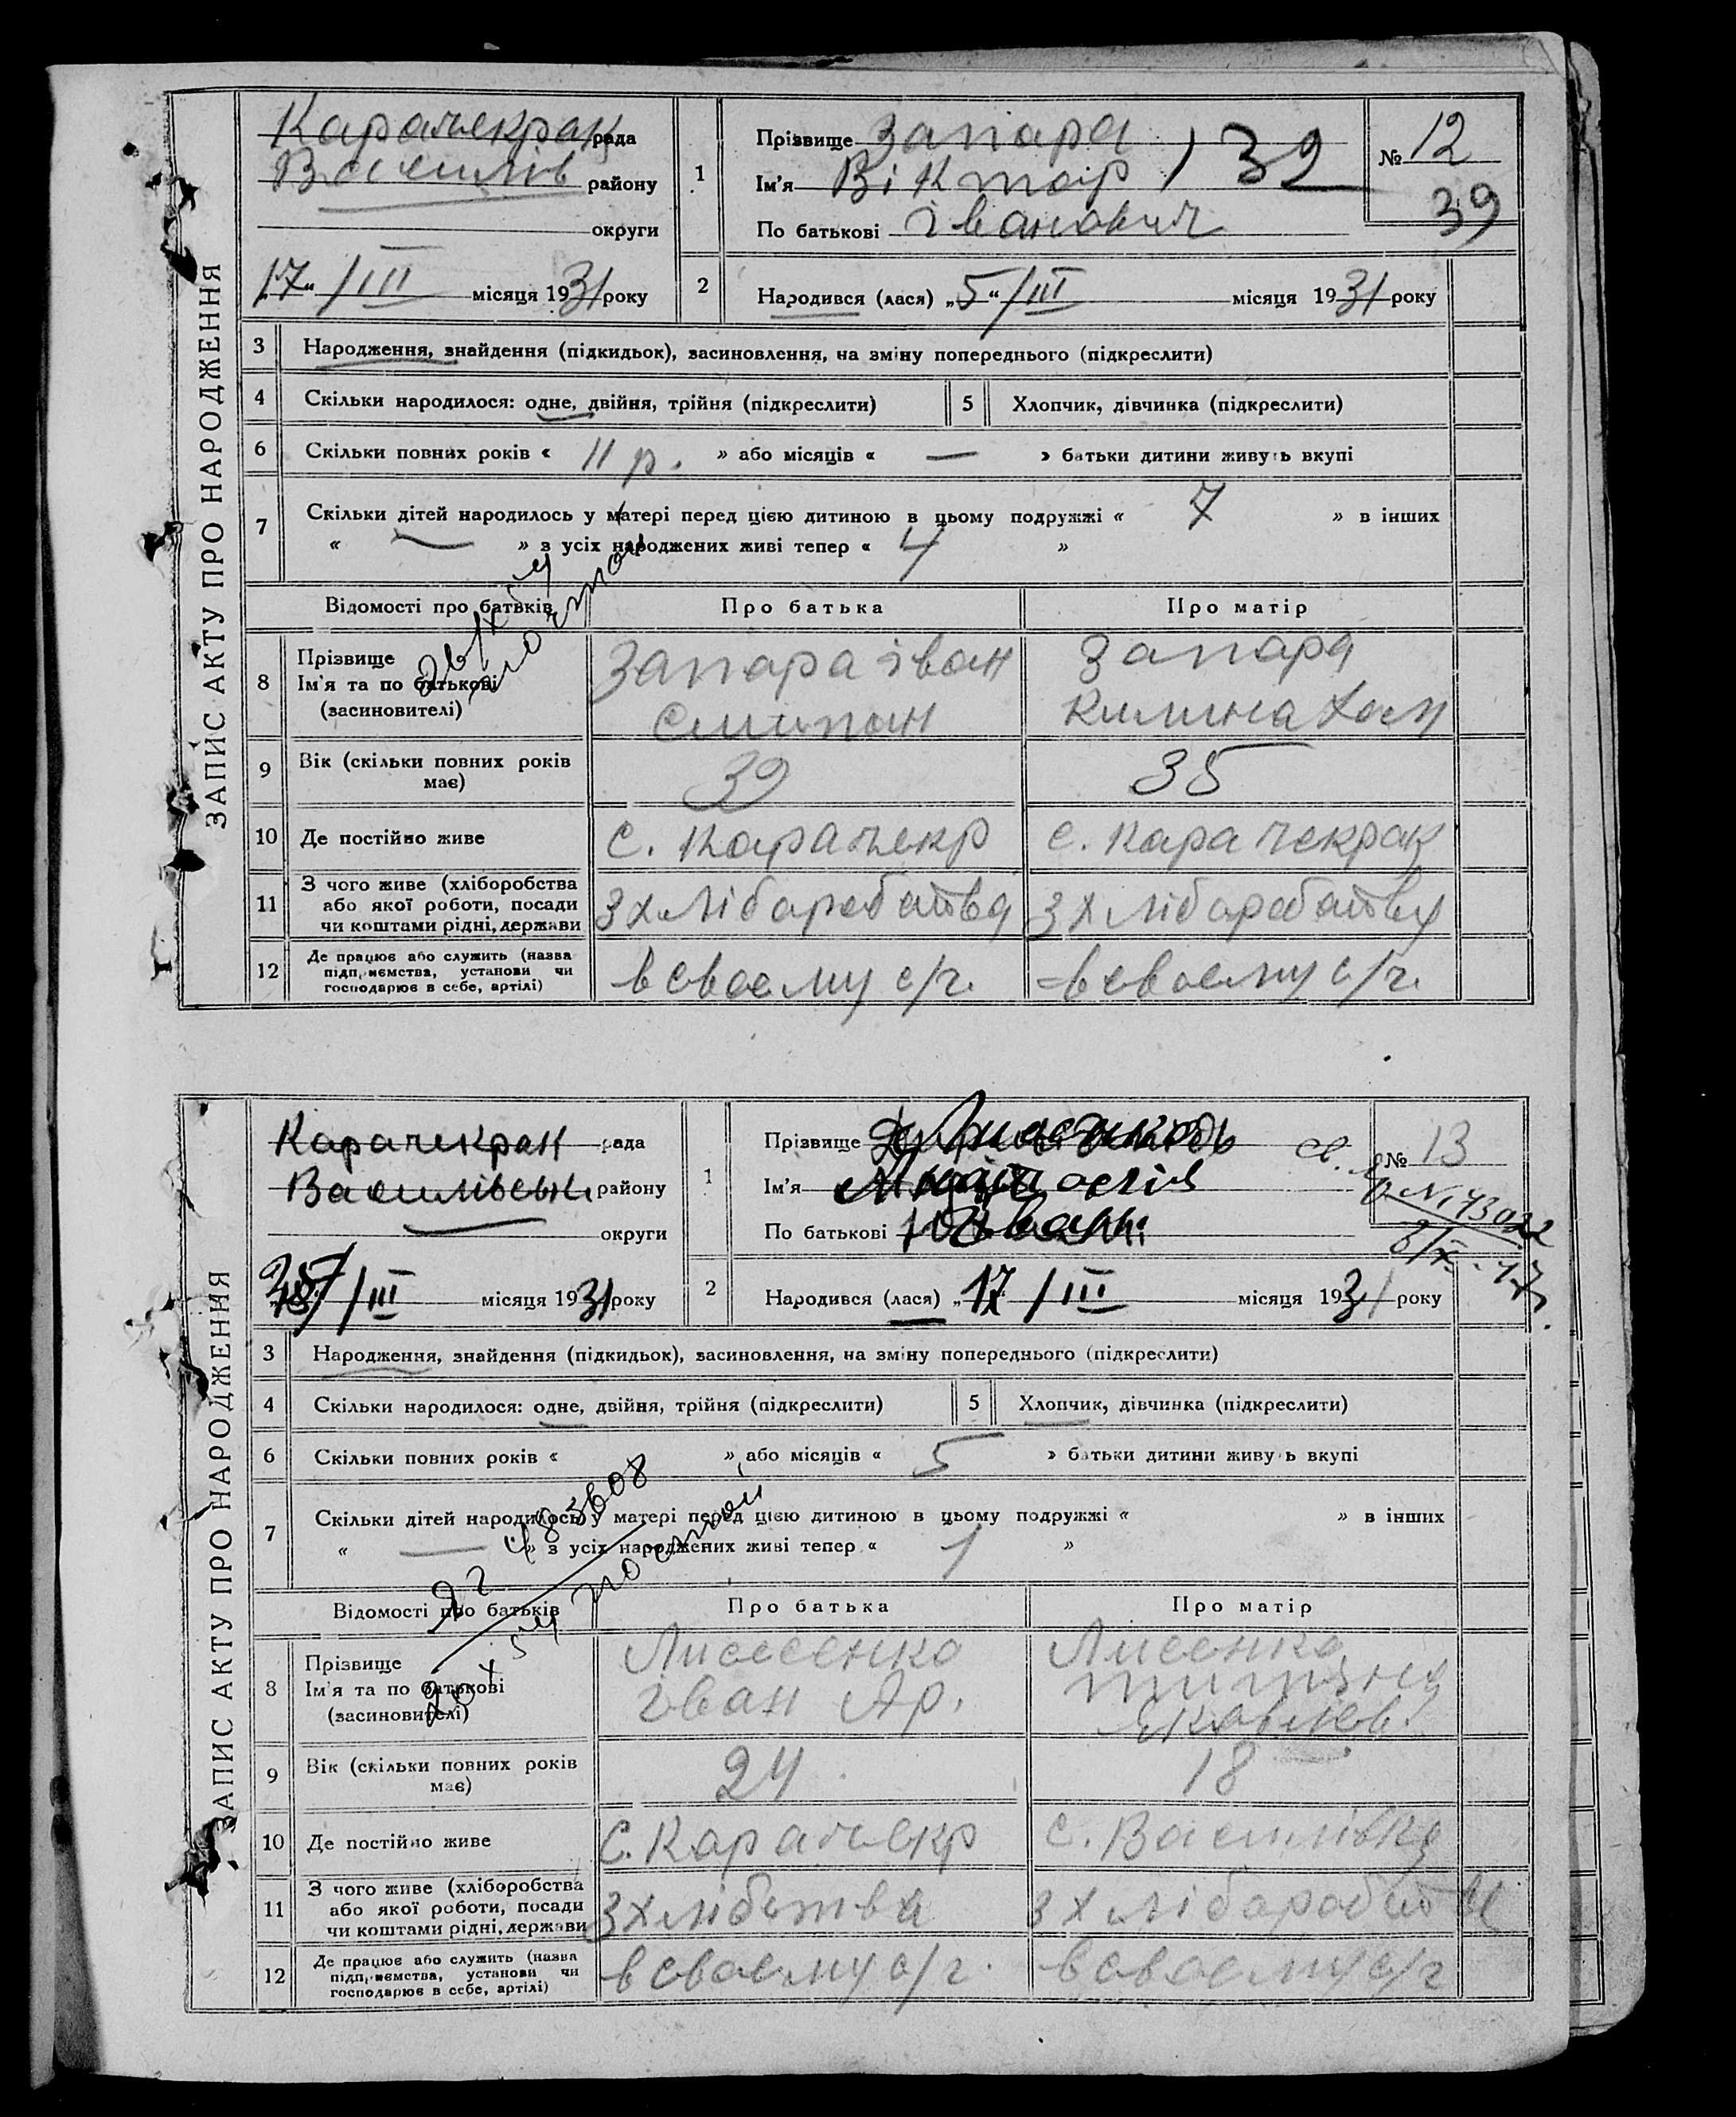 ЗАПИС АКТУ ПРО НАРОДЖЕННЯ
Карачекрак рада
Василів району
округи
„17“/III місяця 1931 року
1
Прізвище Запара
Ім'я Віктор
По батькові Іванович
39
№ 12
39
2
Народився (лася) „5“/III місяця 1931 року
3 Народження, знайдення (підкидьок), засиновлення, на зміну попереднього (підкреслити)
4 Скільки народилося: одне, двійня, трійня (підкреслити) 5 Хлопчик, дівчинка (підкреслити)
6 Скільки повних років « 11 р. » або місяців « — » батьки дитини живуть вкупі
7 Скільки дітей народилось у матері перед цією дитиною в цьому подружжі « 7 » в інших
« — » з усіх народжених живі тепер « 4 »
Відомості про батьків Про батька Про матір
8 Прізвище
Ім'я та по батькові
(засиновителі)
Запара Іван
Запара
Килина Хом
9 Вік (скільки повних років має) 39 35
10 Де постійно живе с. Карачекр с. Карачекрак
11 З чого живе (хліборобства
або якої роботи, посади
чи коштами рідні, держави
З хліборобства
12 Де працює або служить (назва
підприємства, установи чи
господарює в себе, артілі)
в своєму с/г. в своєму с/г.
ЗАПИС АКТУ ПРО НАРОДЖЕННЯ
Карачекрак рада
Василівськ. району
округи
/III місяця 1931 року
1
Прізвище
Ім'я
По батькові
№ 13
2
Народився (лася) „17 /III місяця 1931 року
3 Народження, знайдення (підкидьок), засиновлення, на зміну попереднього (підкреслити)
4 Скільки народилося: одне, двійня, трійня (підкреслити) 5 Хлопчик, дівчинка (підкреслити)
6 Скільки повних років « » або місяців « 5 » батьки дитини живуть вкупі
7 Скільки дітей народилось у матері перед цією дитиною в цьому подружжі « » в інших
« — » з усіх народжених живі тепер « 1 »
Відомості про батьків Про батька Про матір
8 Прізвище
Ім'я та по батькові
(засиновителі)
Іван Ар.
Лисенко
Яковлев.
9 Вік (скільки повних років має) 24 18
10 Де постійно живе С. Карачекр с. Василівка
11 З чого живе (хліборобства
або якої роботи, посади
чи коштами рідні, держави
12 Де працює або служить (назва
підприємства, установи чи
господарює в себе, артілі)
в своєму с/г. в своєму с/г